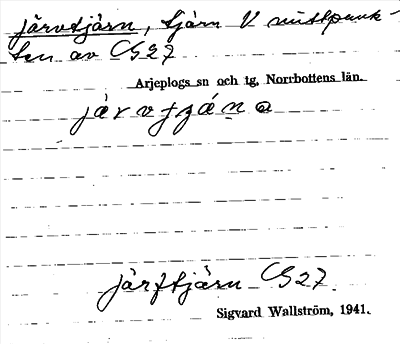 Järvtjärn, tjärn V mittpunk-
ten av CG27.
Arjeplogs sn och tg, Norrbottens län.
Järftjärn CG27.
Sigvard Wallström, 1941.